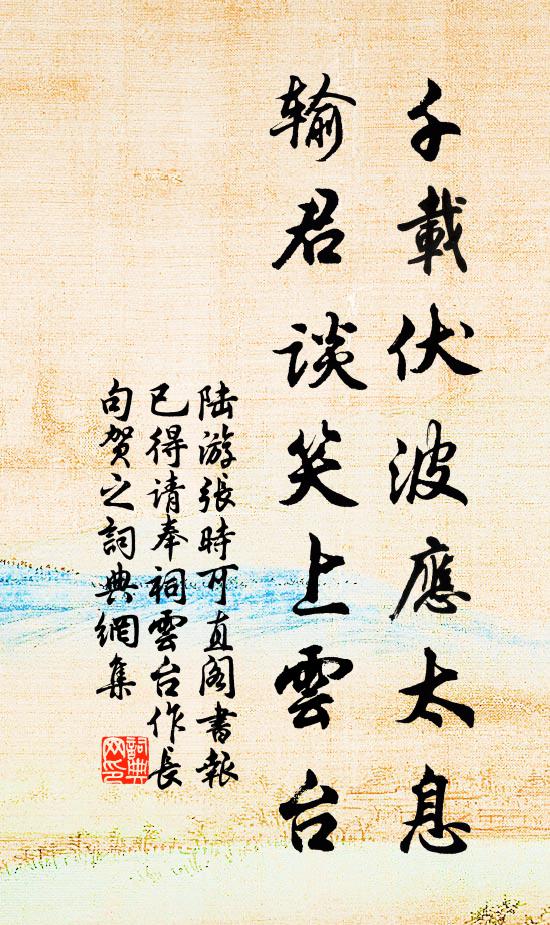 千載伏波應太息
輸君談笑上雲台
陆游張時可直阁書報
已得请奉祠雲台作長
句賀之詞典網集
詞典
网印